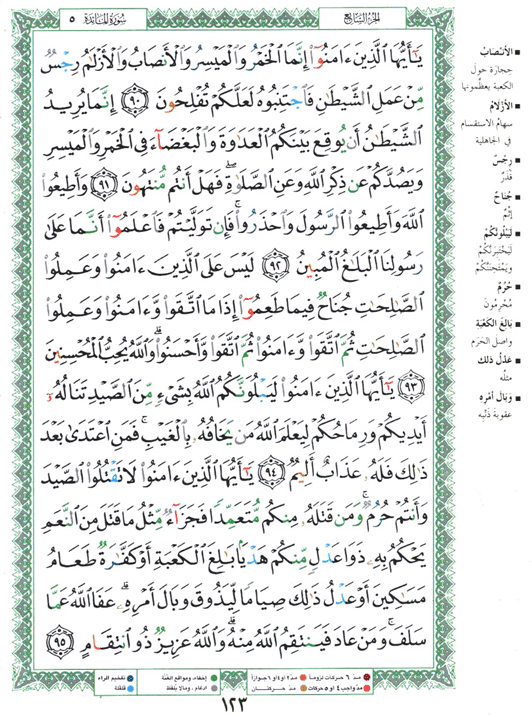 سُورَةُ المَائدة ٥
الجزء السابع
يَٰٓأَيُّهَا ٱلَّذِينَ ءَامَنُوٓا۟ إِنَّمَا ٱلْخَمْرُ وَٱلْمَيْسِرُ وَٱلْأَنصَابُ وَٱلْأَزْلَٰمُ رِجْسٌ
مِّنْ عَمَلِ ٱلشَّيْطَٰنِ فَٱجْتَنِبُوهُ لَعَلَّكُمْ تُفْلِحُونَ ٩٠ إِنَّمَا يُرِيدُ
ٱلشَّيْطَٰنُ أَن يُوقِعَ بَيْنَكُمُ ٱلْعَدَٰوَةَ وَٱلْبَغْضَآءَ فِى ٱلْخَمْرِ وَٱلْمَيْسِرِ
وَيَصُدَّكُمْ عَن ذِكْرِ ٱللَّهِ وَعَنِ ٱلصَّلَوٰةِ ۖ فَهَلْ أَنتُم مُّنتَهُونَ ٩١ وَأَطِيعُوا۟
ٱللَّهَ وَأَطِيعُوا۟ ٱلرَّسُولَ وَٱحْذَرُوا۟ ۚ فَإِن تَوَلَّيْتُمْ فَٱعْلَمُوٓا۟ أَنَّمَا عَلَىٰ
رَسُولِنَا ٱلْبَلَٰغُ ٱلْمُبِينُ ٩٢ لَيْسَ عَلَى ٱلَّذِينَ ءَامَنُوا۟ وَعَمِلُوا۟
ٱلصَّٰلِحَٰتِ جُنَاحٌ فِيمَا طَعِمُوٓا۟ إِذَا مَا ٱتَّقَوا۟ وَّءَامَنُوا۟ وَعَمِلُوا۟
ٱلصَّٰلِحَٰتِ ثُمَّ ٱتَّقَوا۟ وَّءَامَنُوا۟ ثُمَّ ٱتَّقَوا۟ وَّأَحْسَنُوا۟ ۗ وَٱللَّهُ يُحِبُّ ٱلْمُحْسِنِينَ
٩٣ يَٰٓأَيُّهَا ٱلَّذِينَ ءَامَنُوا۟ لَيَبْلُوَنَّكُمُ ٱللَّهُ بِشَىْءٍ مِّنَ ٱلصَّيْدِ تَنَالُهُۥٓ
أَيْدِيكُمْ وَرِمَاحُكُمْ لِيَعْلَمَ ٱللَّهُ مَن يَخَافُهُۥ بِٱلْغَيْبِ ۚ فَمَنِ ٱعْتَدَىٰ بَعْدَ
ذَٰلِكَ فَلَهُۥ عَذَابٌ أَلِيمٌ ٩٤ يَٰٓأَيُّهَا ٱلَّذِينَ ءَامَنُوا۟ لَا تَقْتُلُوا۟ ٱلصَّيْدَ
وَأَنتُمْ حُرُمٌ ۚ وَمَن قَتَلَهُۥ مِنكُم مُّتَعَمِّدًا فَجَزَآءٌ مِّثْلُ مَا قَتَلَ مِنَ ٱلنَّعَمِ
يَحْكُمُ بِهِۦ ذَوَا عَدْلٍ مِّنكُمْ هَدْيًۢا بَٰلِغَ ٱلْكَعْبَةِ أَوْ كَفَّٰرَةٌ طَعَامُ
مَسَٰكِينَ أَوْ عَدْلُ ذَٰلِكَ صِيَامًا لِّيَذُوقَ وَبَالَ أَمْرِهِۦ ۗ عَفَا ٱللَّهُ عَمَّا
سَلَفَ ۚ وَمَنْ عَادَ فَيَنتَقِمُ ٱللَّهُ مِنْهُ ۗ وَٱللَّهُ عَزِيزٌ ذُو ٱنتِقَامٍ ٩٥
■ الأنْصَابُ
حِجَارَة حَولَ
الكعبة يعظّمونها
■ الأزْلَامُ
سهامُ الاستقسام
في الجاهلية
■ رِجْسٌ
قَذَرٌ
■ جُنَاحٌ
إثْمٌ
■ لَيَبْلُوَنَّكُمُ
لَيَخْتَبِرَنَّكُمْ
وَيَمْتَحِنَنَّكُمْ
■ حُرُمٌ
مُحْرِمُونَ
■ بَالِغَ الكَعْبَةِ
واصِل الحَرَم
■ عَدْلُ ذلك
مثلُه
■ وَبَالَ أمْرِهِ
عقوبةَ ذَنْبِه
مدّ ٦ حركات لزوماً ● مدّ ٢ أو ٤ أو ٦ جوازاً ● إخفاء، ومواقع الغُنَّة ● تفخيم الراء
مدّ واجب ٤ أو ٥ حركات ● مدّ حركتـــان ● ادغام، ومالا يُلفظ ● قلقلة
١٢٣